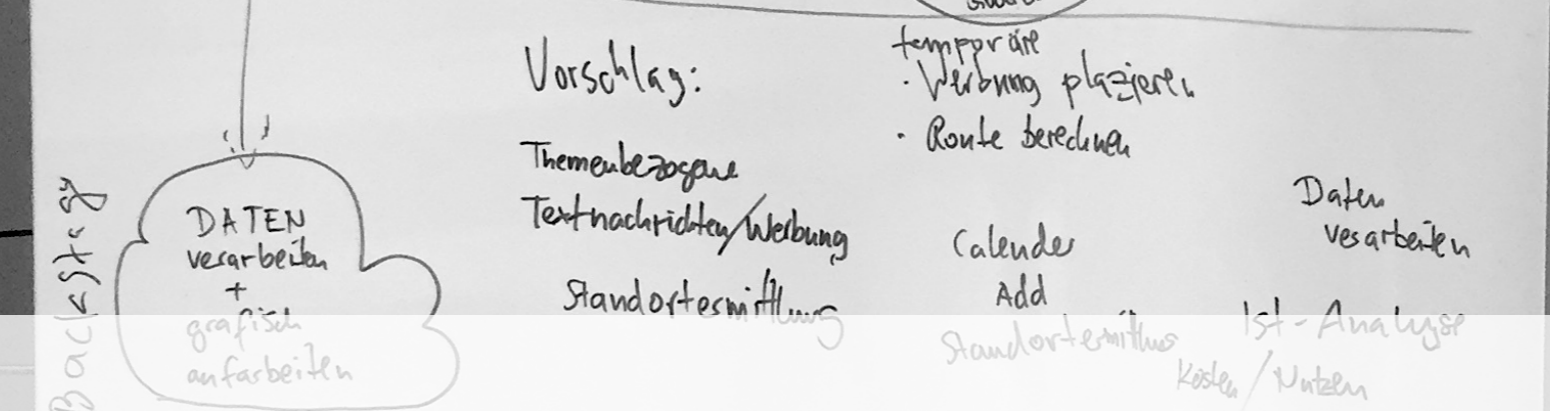 Backstag
DATEN
verarbeiten
+
grafisch
aufarbeiten
Vorschlag:
Themenbezogene
Textnachrichten/Werbung
Standortesmittlung
temporäre
· Werbung plazieren
· Route berechnen
Calender
Add
Standortermittlung
Daten
verarbeiten
Ist-Analyse
Kosten/Nutzen